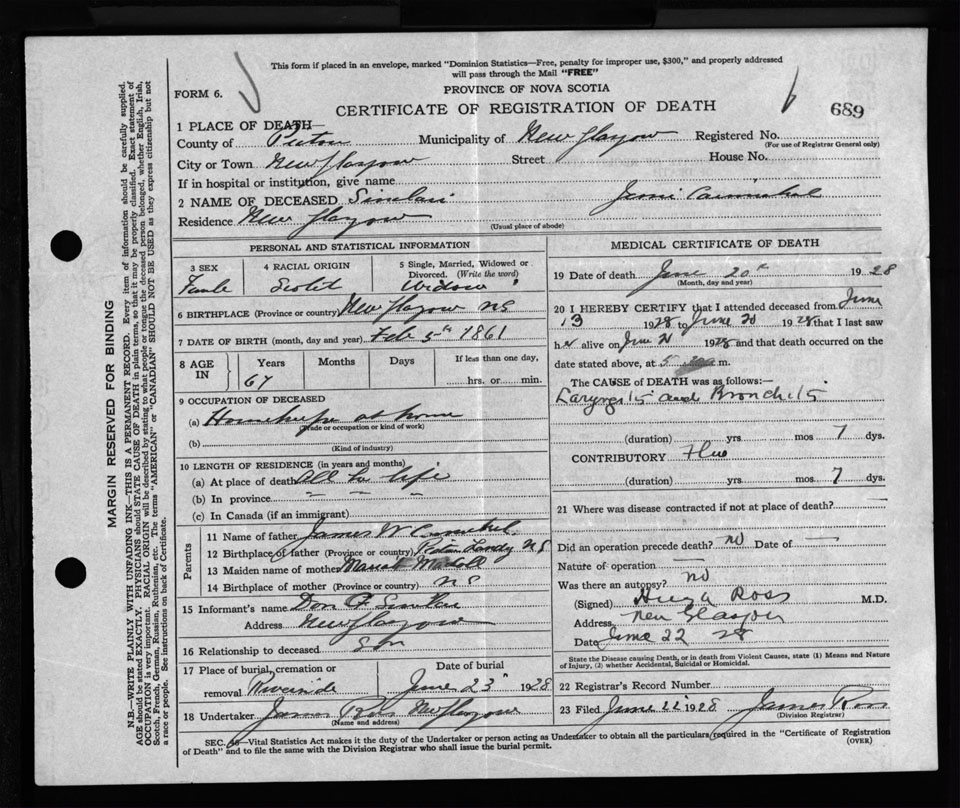 This form if placed in an envelope, marked "Dominion Statistics—Free, penalty for improper use, $300," and properly addressed
will pass through the Mail "FREE"
FORM 6.
PROVINCE OF NOVA SCOTIA
CERTIFICATE OF REGISTRATION OF DEATH
689
1 PLACE OF DEATH—
County of Pictou Municipality of New Glasgow Registered No.
(For use of Registrar General only)
City or Town New Glasgow Street House No.
If in hospital or institution, give name
2 NAME OF DECEASED Sinclair
Residence New Glasgow
(Usual place of abode)
PERSONAL AND STATISTICAL INFORMATION
3 SEX 4 RACIAL ORIGIN 5 Single, Married, Widowed or Divorced. (Write the word)
Female Scotch Widow
6 BIRTHPLACE (Province or country) New Glasgow NS
7 DATE OF BIRTH (month, day and year) Feb 5th 1861
8 AGE IN Years Months Days If less than one day,
67 hrs. or min.
9 OCCUPATION OF DECEASED
(a) at home
(Trade or occupation or kind of work)
(b)
(Kind of industry)
10 LENGTH OF RESIDENCE (in years and months)
(a) At place of death All her life
(b) In province " " "
(c) In Canada (if an immigrant)
Parents
11 Name of father James W
12 Birthplace of father (Province or country) NS
13 Maiden name of mother
14 Birthplace of mother (Province or country) NS
15 Informant's name Don
Address New Glasgow
16 Relationship to deceased Son
17 Place of burial, cremation or removal Riverside
Date of burial June 23 1928
18 Undertaker James New Glasgow
(Name and address)
MEDICAL CERTIFICATE OF DEATH
19 Date of death June 20th 1928
(Month, day and year)
20 I HEREBY CERTIFY that I attended deceased from June
13 1928 to June 20 1928 that I last saw
her alive on June 1928 and that death occurred on the
date stated above, at 5 m.
The CAUSE of DEATH was as follows:—
Laryngitis and Bronchitis
(duration) yrs mos 7 dys.
CONTRIBUTORY Flu
(duration) yrs. mos 7 dys.
21 Where was disease contracted if not at place of death? —
Did an operation precede death? no Date of —
Nature of operation —
Was there an autopsy? no
(Signed) Hugh Ross M.D.
Address, New Glasgow
Date June 22 28
State the Disease causing Death, or in death from Violent Causes, state (1) Means and Nature
of Injury, (2) whether Accidental, Suicidal or Homicidal.
22 Registrar's Record Number
23 Filed June 22 1928 James Ross
(Division Registrar)
SEC. —Vital Statistics Act makes it the duty of the Undertaker or person acting as Undertaker to obtain all the particulars required in the "Certificate of Registration
of Death" and to file the same with the Division Registrar who shall issue the burial permit.
(OVER)
MARGIN RESERVED FOR BINDING
N.B.—WRITE PLAINLY WITH UNFADING INK—THIS IS A PERMANENT RECORD. Every item of information should be carefully supplied.
AGE should be stated EXACTLY. PHYSICIANS should STATE CAUSE OF DEATH in plain terms, so that it may be properly classified. Exact statement of
OCCUPATION is very important. RACIAL ORIGIN will be described by stating to what people or tongue the deceased person belonged, whether English, Irish,
Scotch, French, German, Russian, Ruthenian, etc. The terms "AMERICAN" or "CANADIAN" SHOULD NOT BE USED as they express citizenship but not
a race or people. See instructions on back of Certificate.